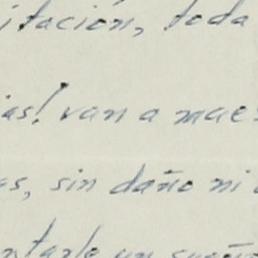 itación, toda
as! van a maes
as, sin daño ni
ntarle un sueño